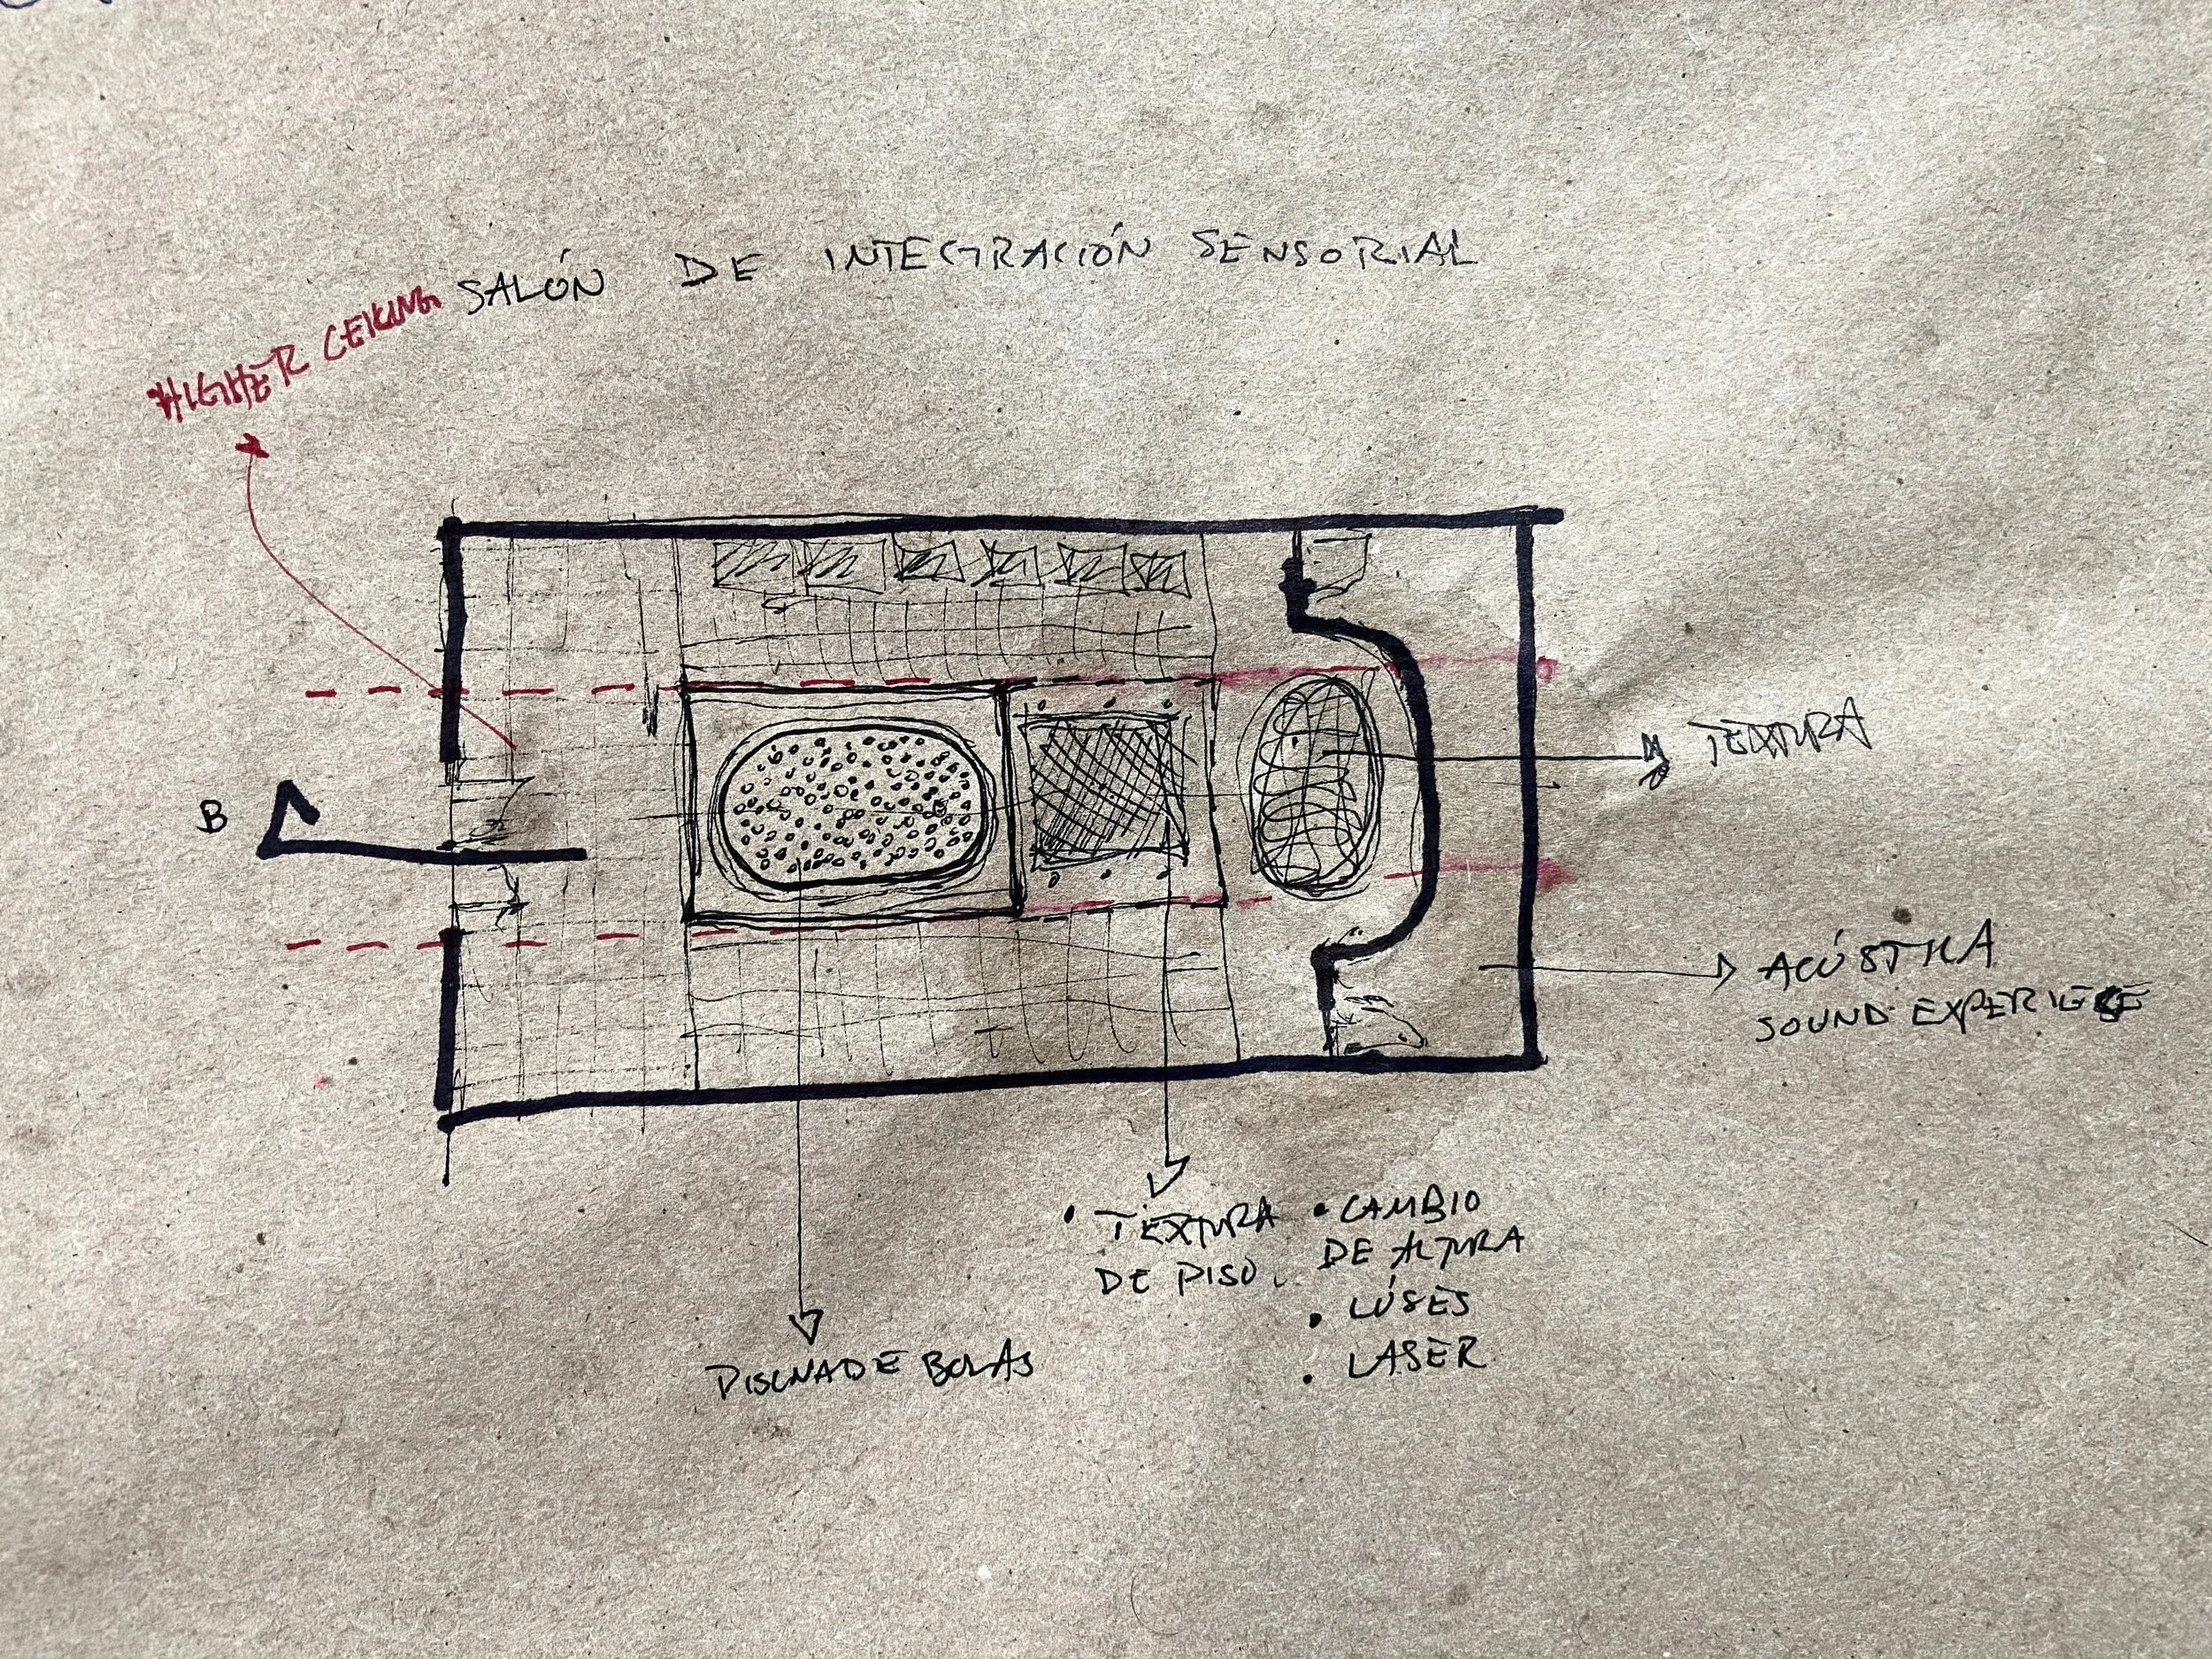 SALÓN DE INTEGRACIÓN SENSORIAL
HIGHER CEILING
B
TEXTURA
ACÚSTICA
SOUND EXPERIENCE
• TEXTURA
DE PISO.
• CAMBIO
DE ALTURA
• LÚSES
• LASER
PISCINA DE BOLAS